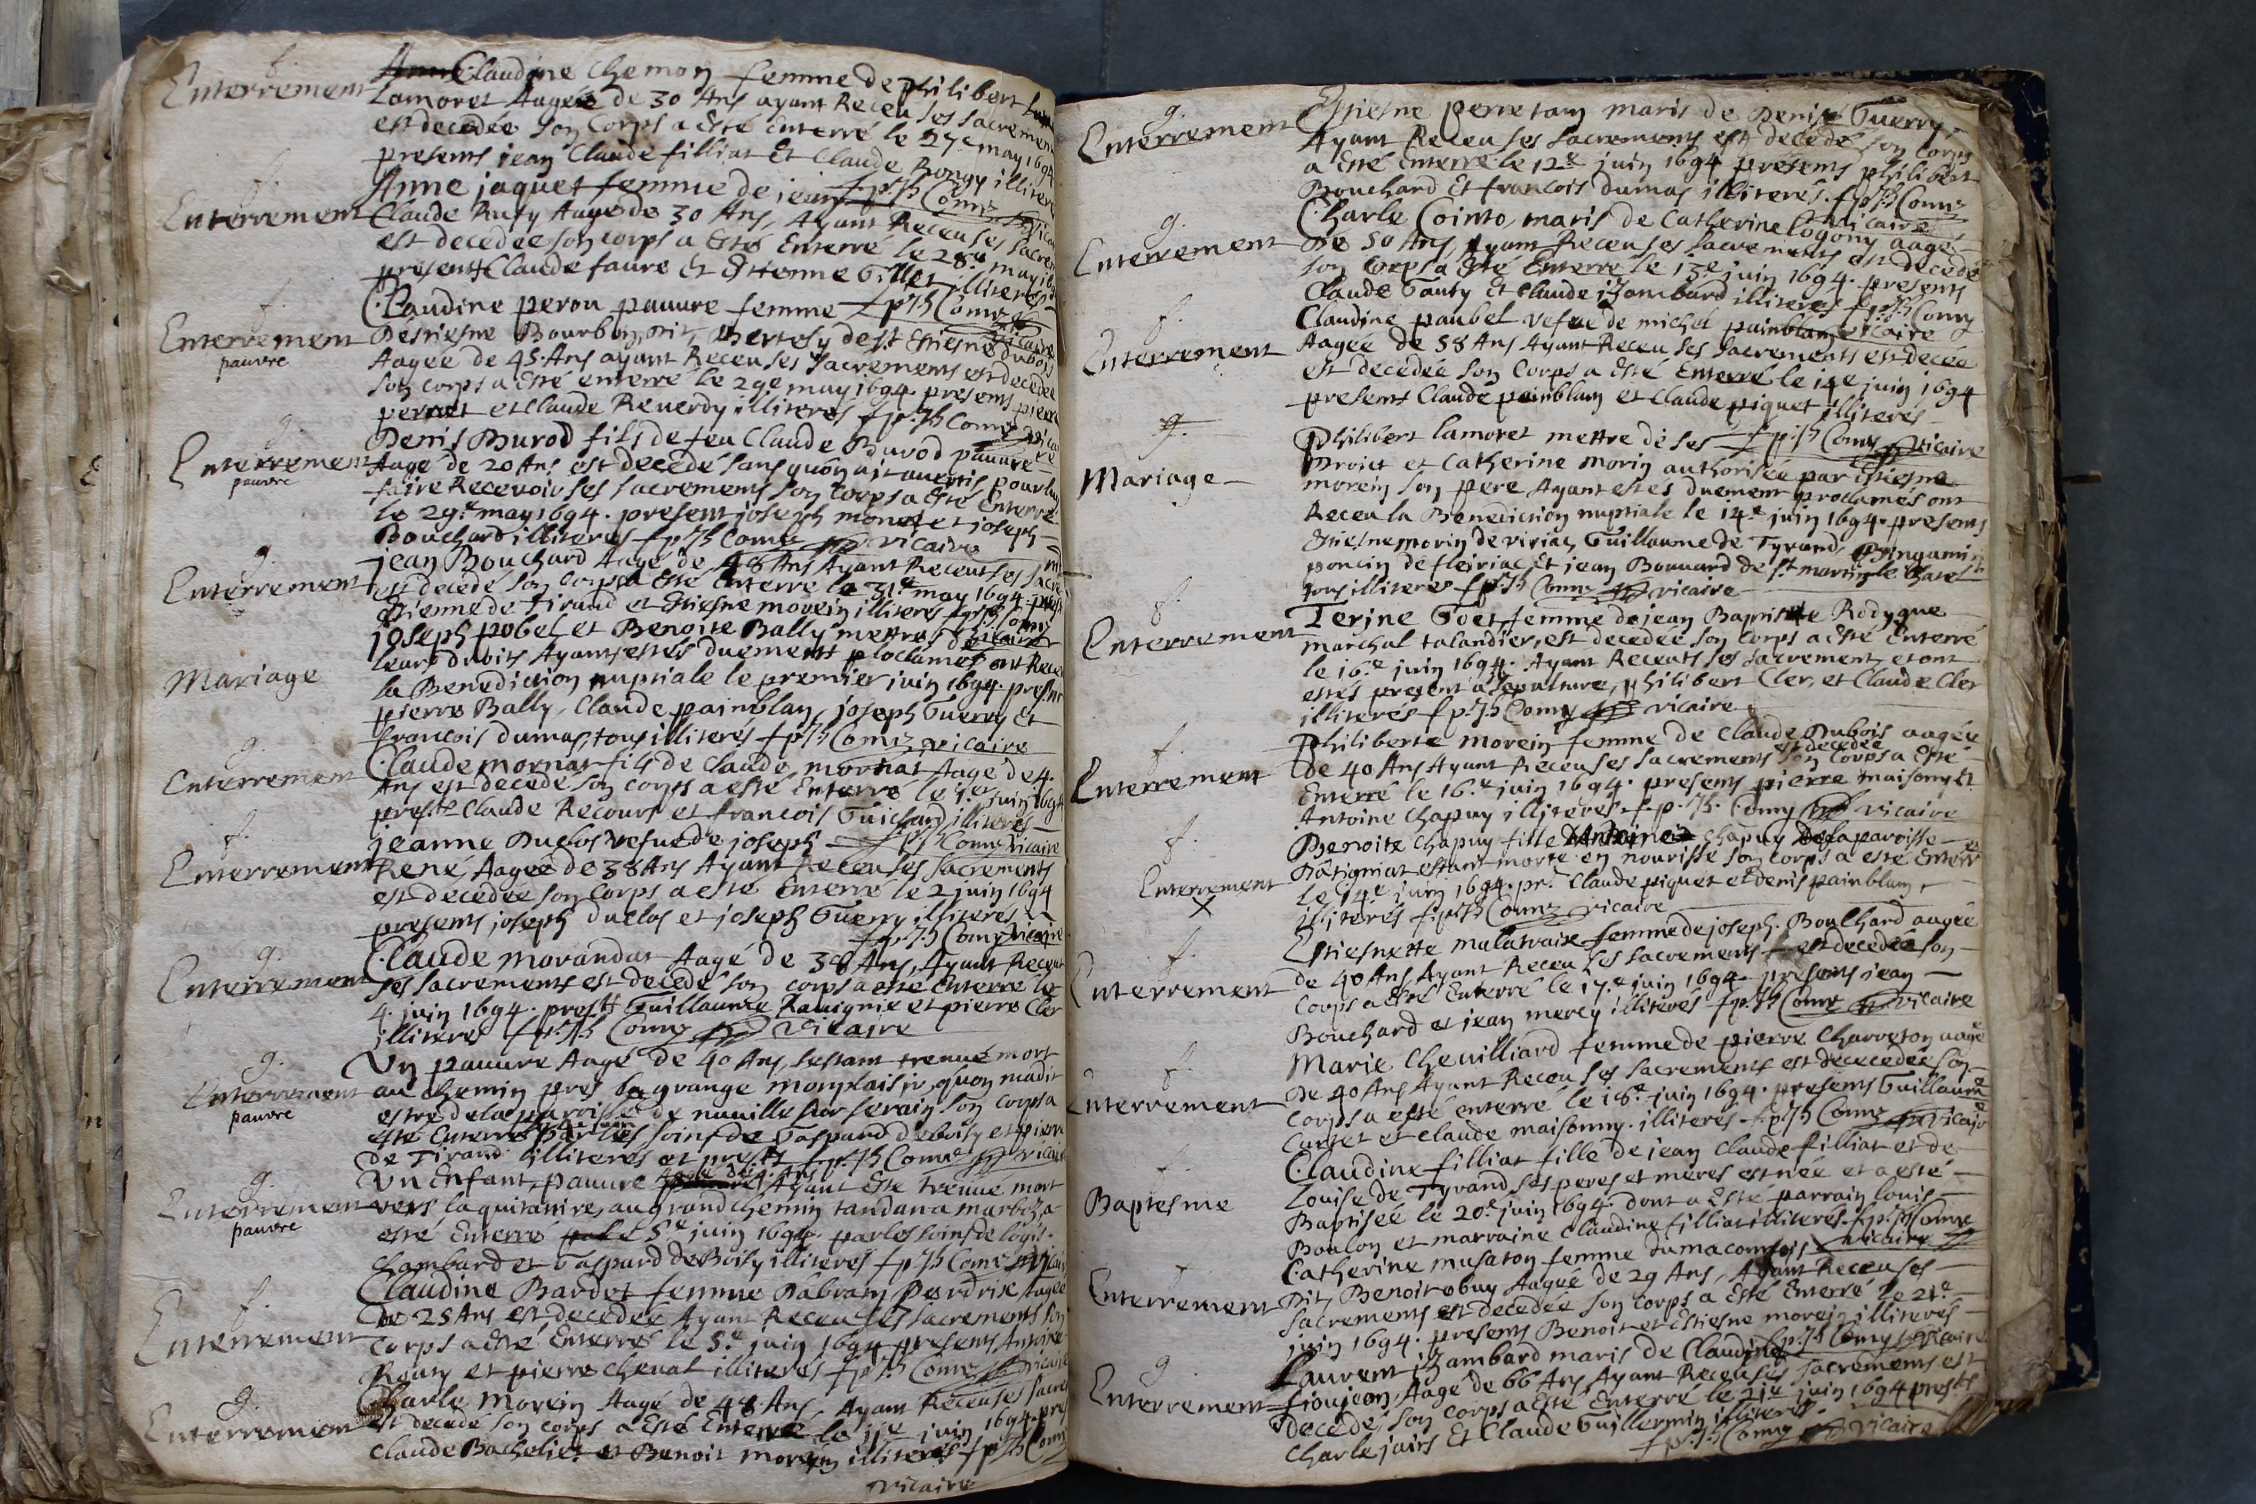 f.
Enterrement
Claudine Chemon femme de philibert
Lamoret Aagée de 30 Ans ayant Receu ses sacrement
est decedée son Corps a Esté Enterré le 27e may 1694
presents jean Claude filliat Et Claude Rongy illiteres
f.
Enterrement
Anne jaquet femme de jean f.p.Jh Comz vicaire
Claude Ruty Aagée de 30 Ans, Ayant Receu ses sacrem
est decedée son corps a Esté Enterré le 28e may 169
presents Claude faure Et Estienne Gillet illiteres
f.
Enterrement
pauvre
Claudine perou pauure femme f.p.Jh Comz
vicaire
Destiesne Bourbon, dit, Bertesy de st Estiesne dubois
Aagée de 45 Ans ayant Receu ses sacrements est decedée
son corps a Esté enterré le 29e may 1694. presents pierre
pernet et Claude Reuerdy illiteres f.p.Jh Comz vicaire
g.
Enterrement
pauvre
Denis Burod fils de feu Claude Burod pauure
Aagé de 20 Ans est decedé sans quon ait auertis pour luy
faire Recevoir ses sacrements son corps a Esté Enterré
le 29e may 1694. present joseph monet et joseph
Bouchard illiteres f.p.Jh Comz vicaire
g.
Enterrement
jean Bouchard Aagé de 48 Ans Ayant Receut ses sacre
est decedé son Corps a Esté Enterré le 31e may 1694. pres
Etienne de Tirand et Estiesne morein illiteres f.p.Jh Comz
vicaire
Mariage
joseph pobel et Benoite Bally mettres de
leurs droits Ayants estés duement ploclamés ont Receu
la Benediction nuptiale le premier juin 1694. presents
pierre Bally, Claude painblan, joseph Guerry Et
francois dumas, tous illiterés f.p.Jh Comz vicaire
g.
Enterrement
Claude mornat fils de Claude mornat Aagé de 4.
Ans est decedé son corps a esté Enterré le 1.er juin 1694
prests Claude Recours et francois Guichard illiterés
f.
Enterrement
jeanne Duclos vefue de joseph f.p.Jh Comz vicaire
René, Aagée de 38 Ans Ayant Receu ses sacrements
est decedée son Corps a esté Enterré le 2 juin 1694
presents joseph duclos et joseph Guerry illiterés
f.p.Jh Comz vicaire
g.
Enterrement
Claude morandat Aagé de 38 Ans, Ayant Receut
ses sacrements est decedé son corps a esté Enterré le
4. juin 1694. prests Guillaume Rauignie et pierre Cler
illiteres f.p.Jh Comz vicaire
g.
Enterrement
pauvre
Un pauure Aagé de 40 Ans, sestant treuué mort
au chemin pres la grange monplaisir, quon madit
estre de la parroisse de neuuille sur serain son corps a
esté Enterré par les soins de Gaspand deboisy et pierre
de Tirand illiteres et prests f.p.Jh Comz vicaire
g.
Enterrement
pauvre
Un Enfant, pauure Aagé de Ans Ayant Esté treuué mort
vers laquitaniere, au grand chemin tandan a marboz, a
esté Enterré le 5e juin 1694. par les soins de logis
Chambard et Gaspard de Boisy illiteres f.p.Jh Comz vicaire
f.
Enterrement
Claudine Bardet femme Dabram perdrix Aagée
de 25 Ans est decedée Ayant Receu ses sacrements son
Corps a Esté Enterré le 5e juin 1694 presents Antoine
Routy et pierre cheuat illiteres f.p.Jh Comz vicaire
g.
Enterrement
Charle Morein Aagé de 48 Ans, Ayant Receu ses sacre
est decedé son corps a Esté Enterré le 11e juin 1694. pres
Claude Bachelier et Benoit morein illiteres f.p.Jh Comz
vicaire
g.
Enterrement
Estiesne perretan maris de Denise Guerry
Ayant Receu ses sacrements est decedé son corps
a Esté Enterré le 12e juin 1694 presents philibert
Bouchard Et francois dumas illiterés. f.p.Jh Comz
vicaire
g.
Enterrement
Charle Cointo, maris de Catherine Cogony aagé
de 50 Ans, Ayant Receu ses sacrements est decedé
son corps a Esté Enterré le 13e juin 1694. presents
Claude Gauty Et Claude jZambard illiteres f.p.Jh Comz
vicaire
f.
Enterrement
Claudine paubel vefue de michel painblan
Aagée de 58 Ans Ayant Receu ses sacrements est decée
est decedée son Corps a Esté Enterré le 14e juin 1694
presents Claude painblan et Claude piquet illiterés
f.p.Jh Comz vicaire
g.
Mariage
philibert lamoret mettre de ses
Droict et Catherine morin authorisée par Estiesne
morein son pere Ayant estés duement proclamés ont
Receu la Benediction nuptiale le 14e juin 1694. presents
Estiesne morin de viriac, Guillaume de Tyrand, Bengamin
poncin de fleiriac, Et jean Bonnard de st martin le chatel
tous illiteres f.p.Jh Comz vicaire
f.
Enterrement
Terine Goet, femme de jean Baptiste Rodygue
marchal talandier, est decedée son Corps a esté Enterré
le 16e juin 1694. Ayant Receuts ses sacrement, et ont
estés present a sepulture, philibert Cler, et Claude Cler
illiterés f.p.Jh Comz vicaire
f.
Enterrement
philiberte morein femme de Claude Dubois aagée
de 40 Ans Ayant Receu ses sacrements est decedée son Corps a Esté
Enterré le 16e juin 1694. presents pierre maisony Et
Antoine Chapuy illiterés f.p.Jh. Comz vicaire
f.
Enterrement
X
Benoite Chapuy fille Antoine Chapuy de la paroisse
Datigniat estant morte en nourisse son corps a esté Enterré
le 14e juin 1694. prt Claude piquet et denis painblan
illiterés f.p.Jh Comz vicaire
f.
Enterrement
Estiesnette malatraix femme de joseph Boulhard aagée
de 40 Ans Ayant Receu ses sacrements est decedée son
Corps a Esté Enterré le 17e juin 1694. presents jean
Bouchard et jean mercy illiterés f.p.Jh Comz vicaire
f.
Enterrement
Marie Cheuilliard femme de pierre Charreton aagé
de 40 Ans Ayant Receu ses sacrements est dececedée son
Corps a esté enterré le 18e juin 1694. presents Guillaume
Curtet et Claude maisonny. illiterés f.p.Jh Comz vicaire
f.
Baptesme
Claudine filliat fille de jean Claude filliat et de
Louise de Tyrand ses peres et meres est née et a esté
Baptisée le 20e juin 1694. dont a Esté parrain louis
Boulon et marraine Claudine filliat illiterés. f.p.Jh Comz
vicaire
f.
Enterrement
Catherine musaton femme dumaconnois
Dit, Benoit obuy Aagée de 29 Ans, Ayant Receu ses
sacrements est decedée son Corps a Esté Enterré le 21e
juin 1694. presents Benoit et Estiesne morein illiterés
f.p.Jh Comz vicaire
g.
Enterrement
Laurent jZambard maris de Claudine
fioujeon, Aagé de 66 Ans Ayant Receu ses sacrements est
decedé son Corps a Esté Enterré le 21e juin 1694 prests
Charle jairs Et Claude Guillermin illiterés
f.p.Jh Comz vicaire